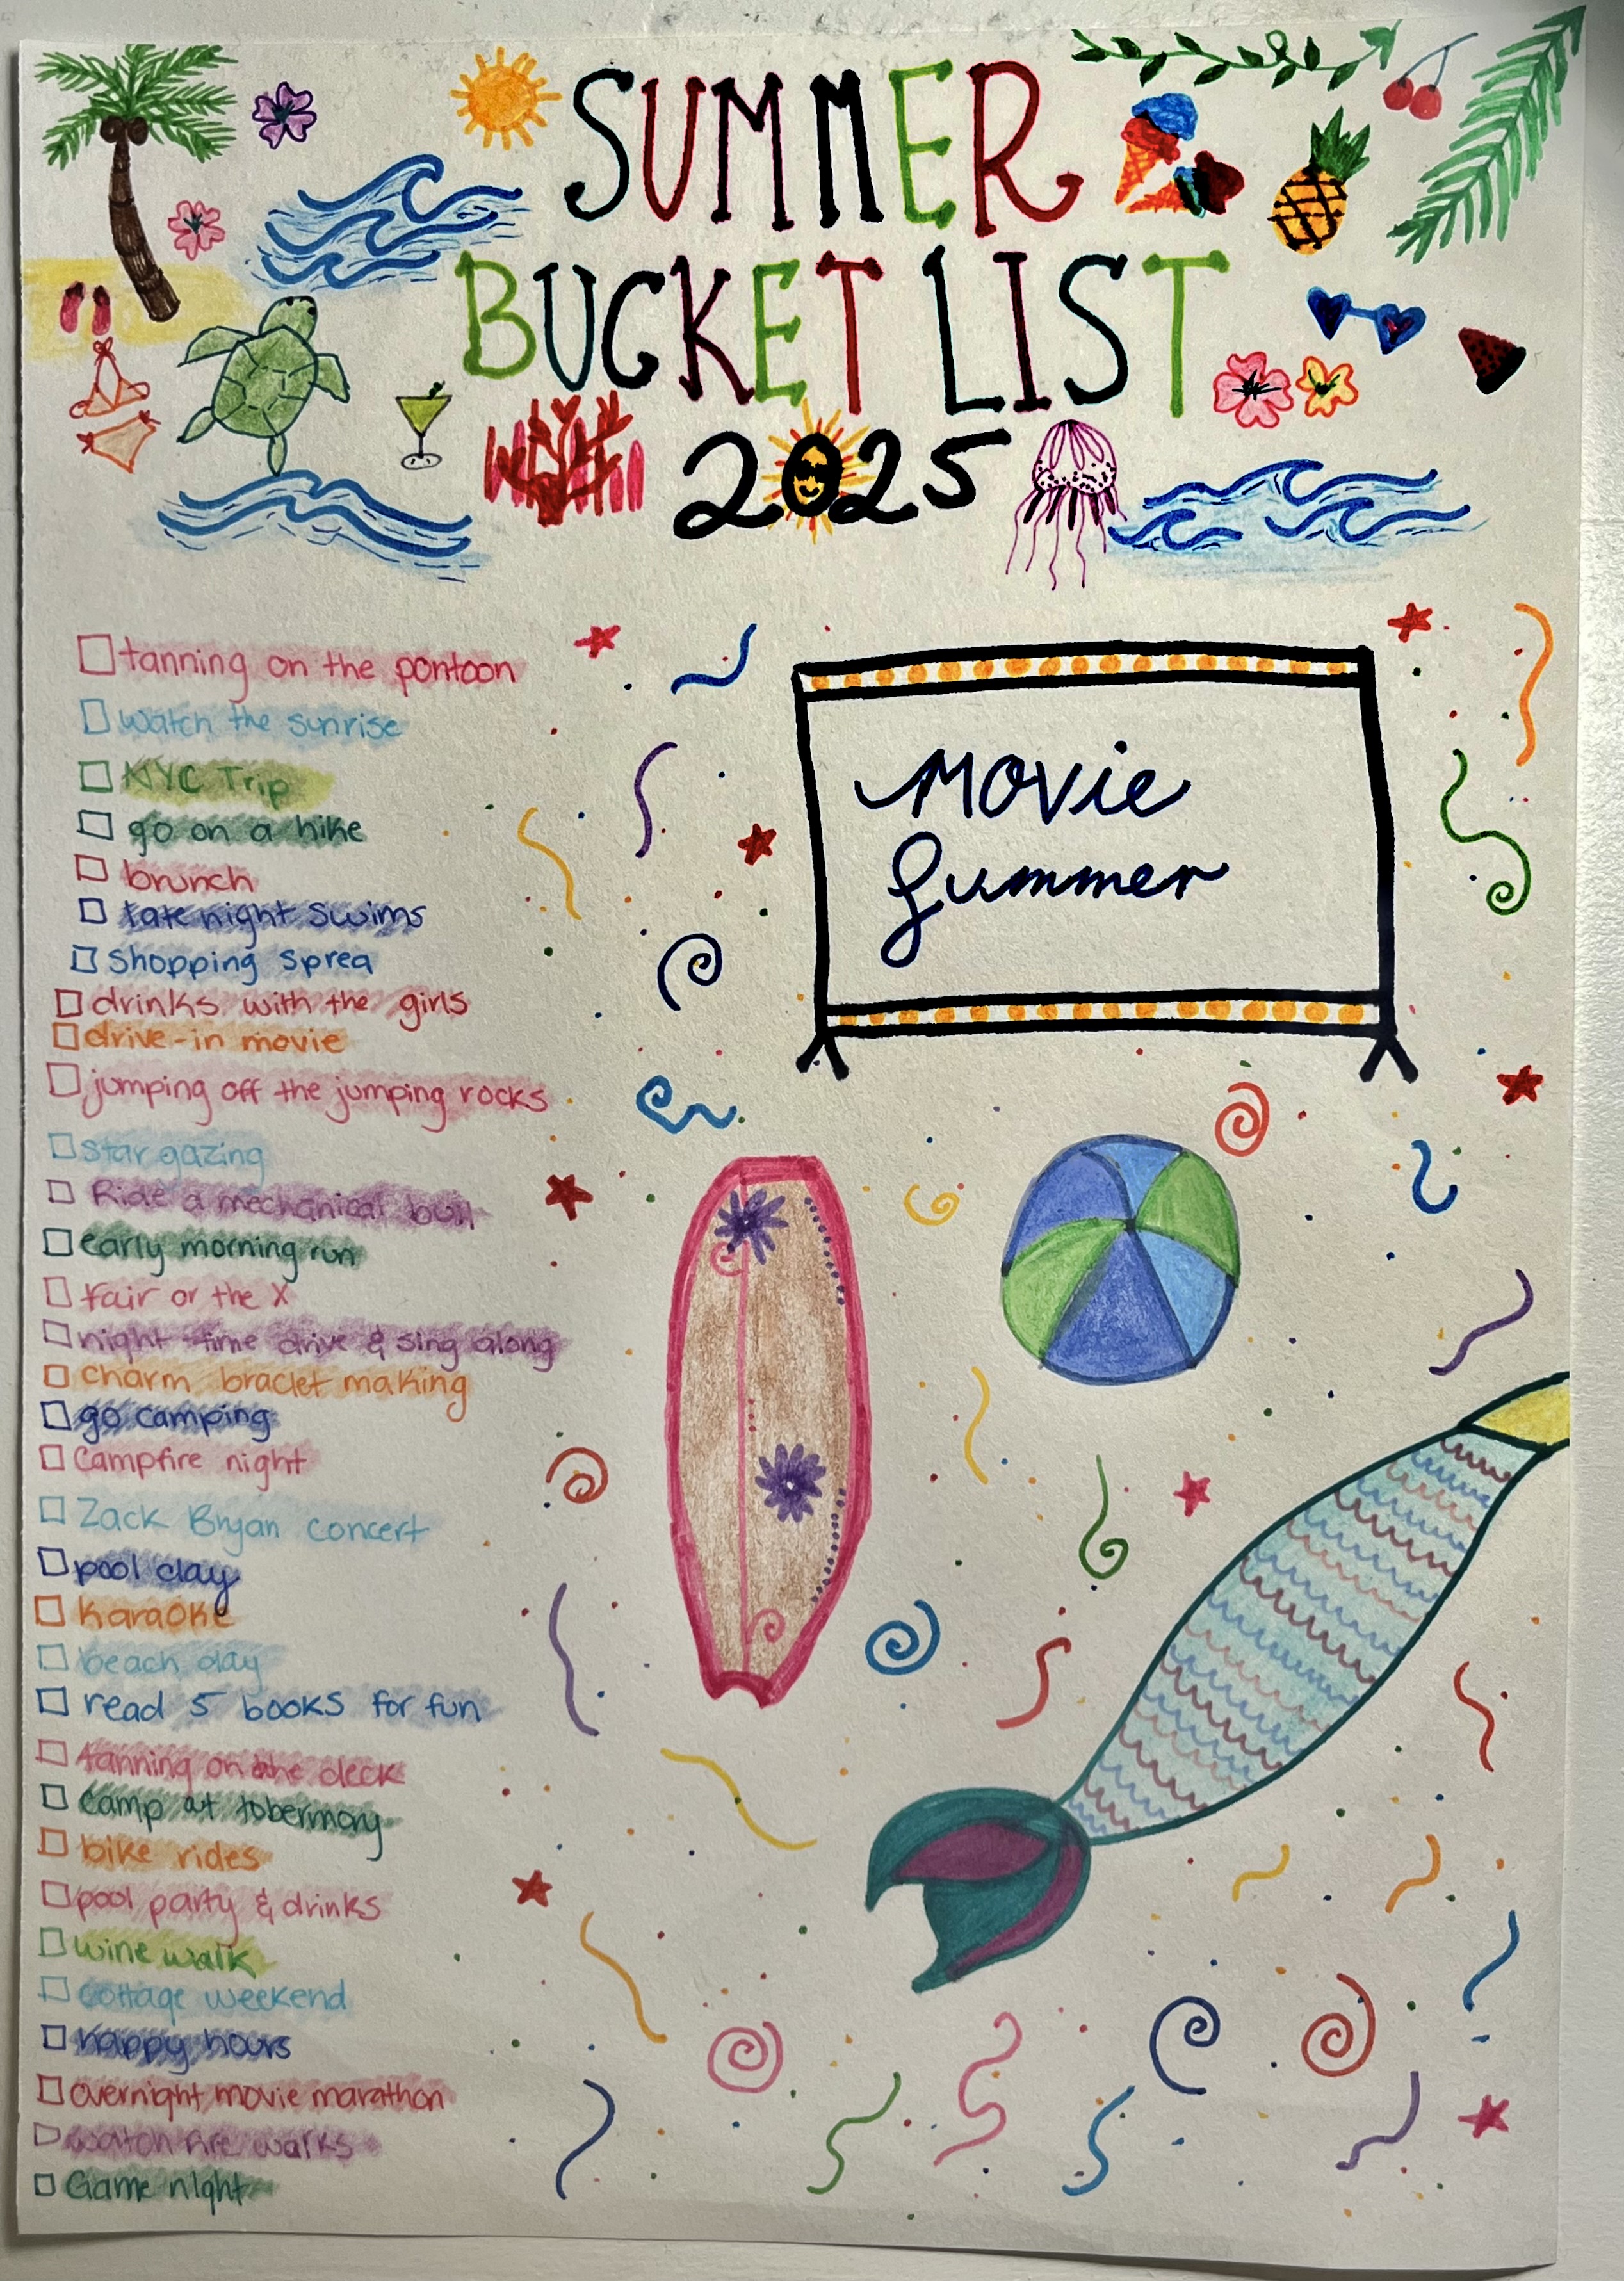 SUMMER
BUCKET LIST
2025
tanning on the pontoon
watch the sunrise
NYC Trip
go on a hike
brunch
late night swims
Shopping Sprea
drinks with the girls
drive-in movie
jumping off the jumping rocks
star gazing
Ride a mechanical bull
early morning run
Fair or the X
night time drive & sing along
charm braclet making
go camping
Campfire night
Zack Bryan concert
pool day
Karaoke
beach day
read 5 books for fun
tanning on the deck
camp at tobermory
bike rides
pool party & drinks
wine walk
Cottage weekend
happy hours
overnight movie marathon
watch fire walks
Game night
Movie
Summer